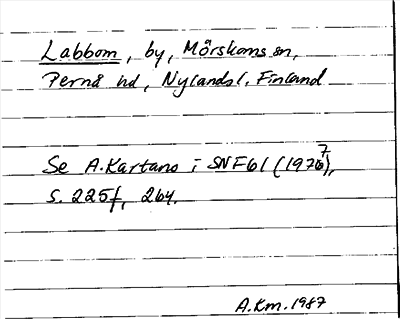 Labbom, by, Mörskoms sn,
Pernå hd, Nylands l, Finland
Se A. Kartano i SNF 61 (1977),
s. 225f, 264.
A.Km. 1987